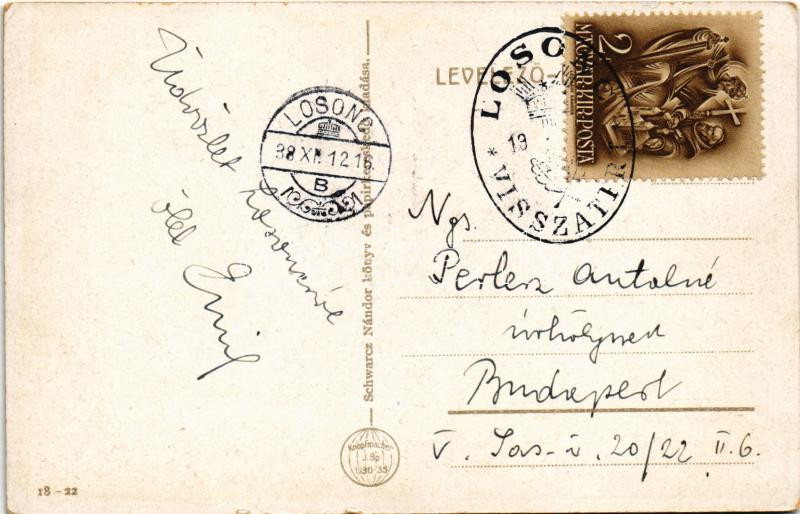 Üdvözlet Losoncról
ölel
Emil
LOSONC
38 XI 12 16
B
Schwarcz Nándor könyv és papirkereskedő kiadása.
LEVELEZŐ-
LOSONC
19
* VISSZATÉRT
2
MAGYAR KIR. POSTA
Ngs.
Perlesz Antalné
úrhölgynek
Budapest
V. Sas-u. 20/22 II. 6.
Knopfmacher
J. Bp
1930-35
18 - 22